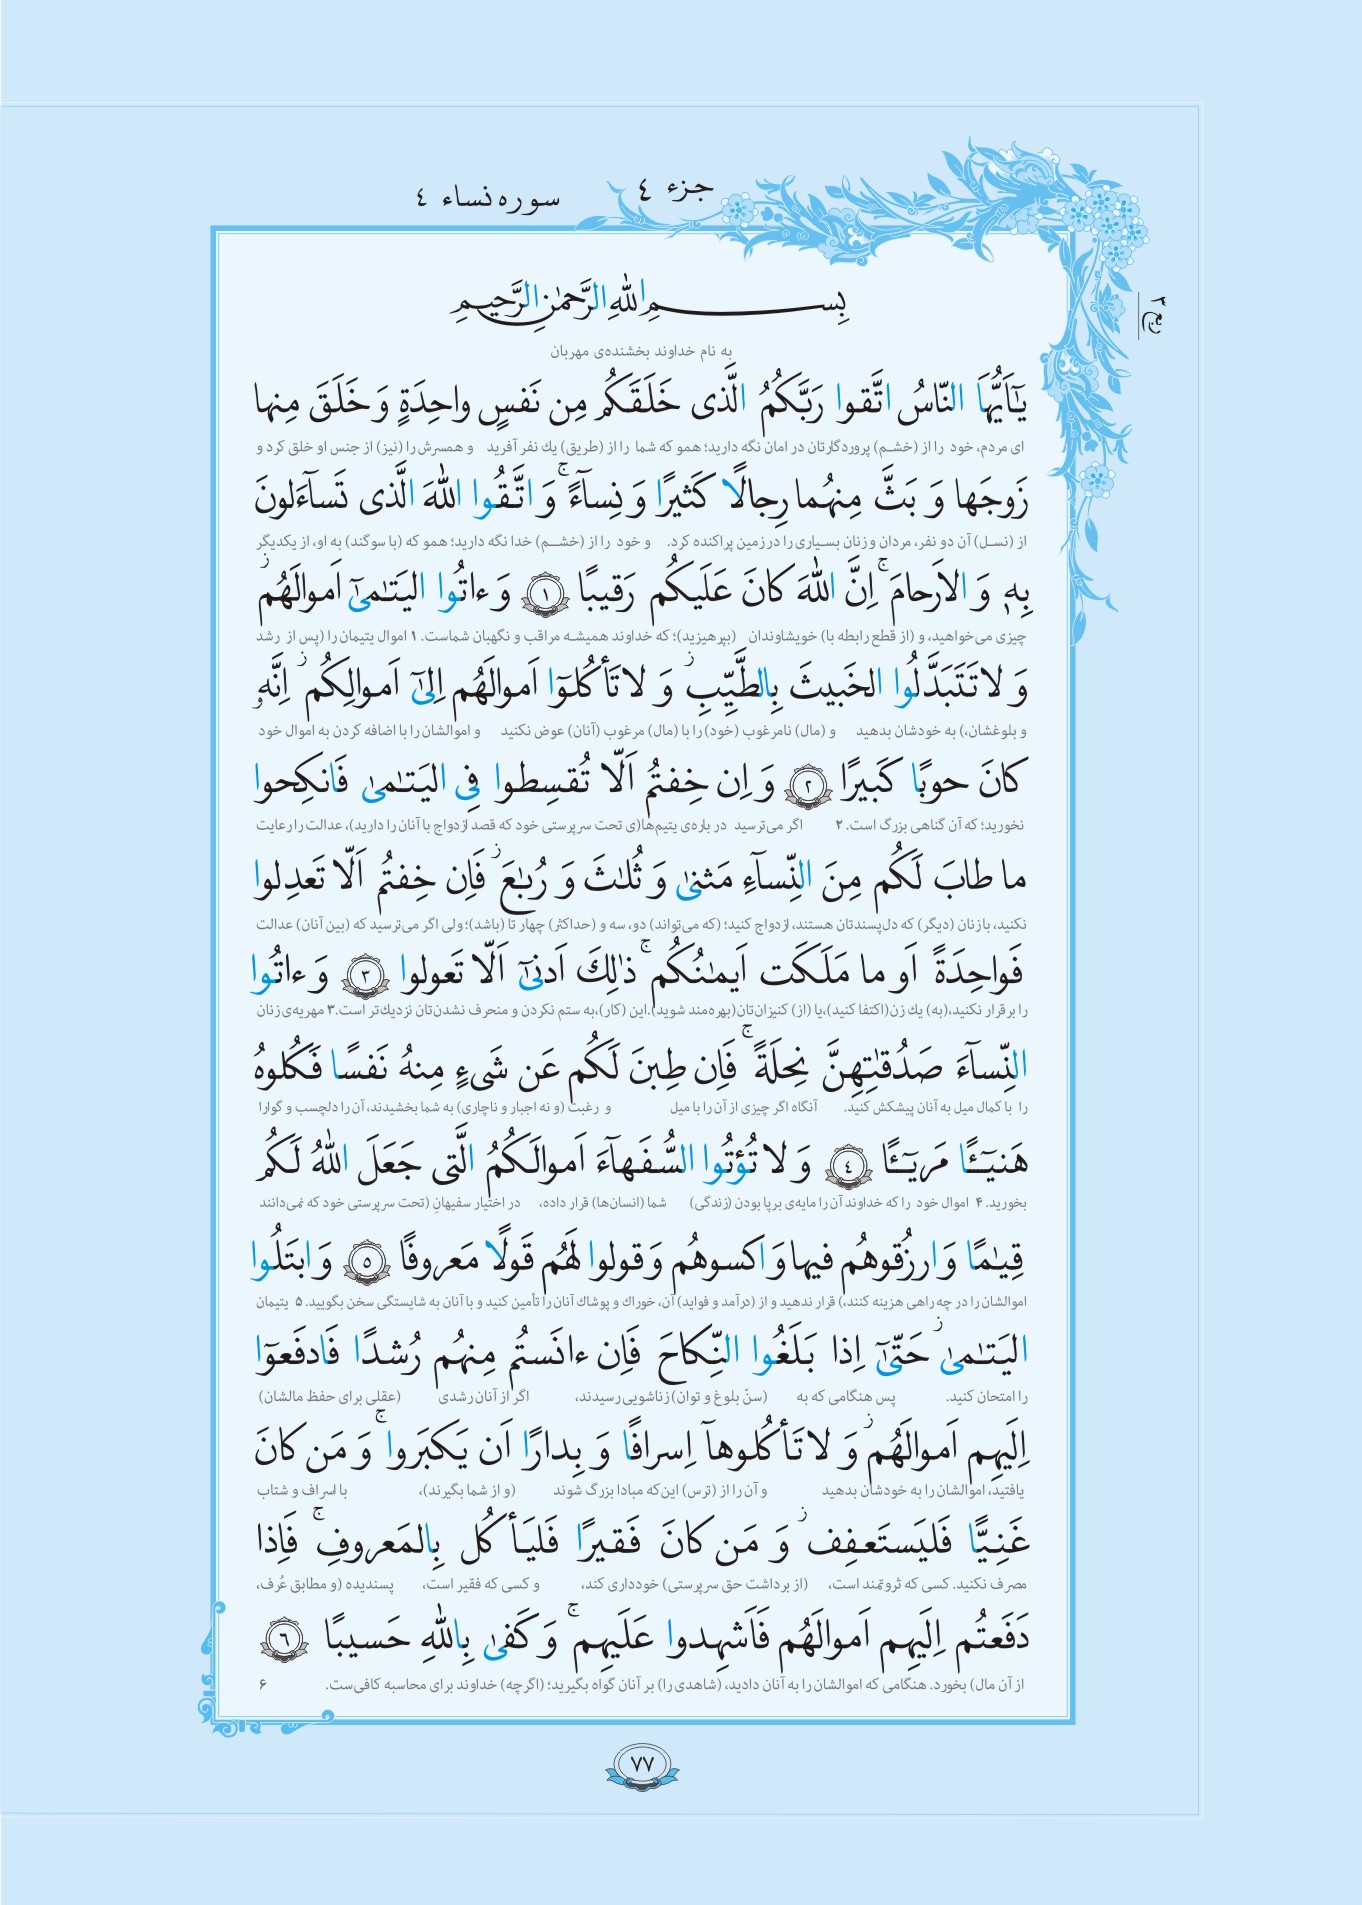 جزء ٤
سوره نساء ٤
ربع ٣
بِسمِ اللهِ الرَّحمٰنِ الرَّحيمِ
به نام خداوند بخشنده‌ی مهربان
يٰٓاَيُّهَا النّاسُ اتَّقوا رَبَّكُمُ الَّذى خَلَقَكُم مِن نَفسٍ واحِدَةٍ وَ خَلَقَ مِنها
ای مردم، خود را از (خشم) پروردگارتان در امان نگه دارید؛ همو که شما را از (طریق) یك نفر آفرید و همسرش را (نیز) از جنس او خلق کرد و
زَوجَها وَ بَثَّ مِنهُما رِجالًا كَثيرًا وَ نِسآءً ۚ وَ اتَّقُوا اللهَ الَّذى تَسآءَلونَ
از (نسل) آن دو نفر، مردان و زنان بسیاری را در زمین پراکنده کرد. و خود را از (خشم) خدا نگه دارید؛ همو که (با سوگند) به او، از یکدیگر
بِهٖ وَ الاَرحامَ ۚ اِنَّ اللهَ كانَ عَلَيكُم رَقيبًا ﴿١﴾ وَ ءاتُوا اليَتٰمىٰٓ اَموالَهُم ز
چیزی می‌خواهید، و (از قطع رابطه با) خویشاوندان (بپرهیزید)؛ که خداوند همیشه مراقب و نگهبان شماست. ۱ اموال یتیمان را (پس از رشد
وَ لا تَتَبَدَّلُوا الخَبيثَ بِالطَّيِّبِ ز وَ لا تَأكُلوٓا اَموالَهُم اِلىٰٓ اَموالِكُم ز اِنَّهٗ
و بلوغشان،) به خودشان بدهید و (مال) نامرغوب (خود) را با (مال) مرغوب (آنان) عوض نکنید و اموالشان را با اضافه کردن به اموال خود
كانَ حوبًا كَبيرًا ﴿٢﴾ وَ اِن خِفتُم اَلّا تُقسِطوا فِى اليَتٰمىٰ فَانكِحوا
نخورید؛ که آن گناهی بزرگ است. ۲ اگر می‌ترسید در باره‌ی یتیم‌ها(ی تحت سرپرستی خود که قصد ازدواج با آنان را دارید)، عدالت را رعایت
ما طابَ لَكُم مِنَ النِّسآءِ مَثنىٰ وَ ثُلٰثَ وَ رُبٰعَ ز فَاِن خِفتُم اَلّا تَعدِلوا
نکنید، با زنان (دیگر) که دل‌پسندتان هستند، ازدواج کنید؛ (که می‌تواند) دو، سه و (حداکثر) چهار تا (باشد)؛ ولی اگر می‌ترسید که (بین آنان) عدالت
فَواحِدَةً اَو ما مَلَكَت اَيمٰنُكُم ۚ ذٰلِكَ اَدنىٰٓ اَلّا تَعولوا ﴿٣﴾ وَ ءاتُوا
را برقرار نکنید،(به) یك زن(اکتفا کنید)،یا (از) کنیزان‌تان(بهره‌مند شوید).این (کار)،به ستم نکردن و منحرف نشدن‌تان نزدیك‌تر است.۳ مهریه‌ی زنان
النِّسآءَ صَدُقٰتِهِنَّ نِحلَةً ۚ فَاِن طِبنَ لَكُم عَن شَىءٍ مِنهُ نَفسًا فَكُلوهُ
را با کمال میل به آنان پیشکش کنید. آنگاه اگر چیزی از آن را با میل و رغبت (و نه اجبار و ناچاری) به شما بخشیدند، آن را دلچسب و گوارا
هَنيٓـًٔا مَريٓـًٔا ﴿٤﴾ وَ لا تُؤتُوا السُّفَهآءَ اَموالَكُمُ الَّتى جَعَلَ اللهُ لَكُم
بخورید. ۴ اموال خود را که خداوند آن را مایه‌ی برپا بودن (زندگی) شما (انسان‌ها) قرار داده، در اختیار سفیهانِ (تحت سرپرستی خود که نمی‌دانند
قِيٰمًا وَ ارزُقوهُم فيها وَ اكسوهُم وَ قولوا لَهُم قَولًا مَعروفًا ﴿٥﴾ وَ ابتَلُوا
اموالشان را در چه راهی هزینه کنند،) قرار ندهید و از (درآمد و فواید) آن، خوراك و پوشاك آنان را تأمین کنید و با آنان به شایستگی سخن بگویید. ۵ یتیمان
اليَتٰمىٰ ز حَتّىٰٓ اِذا بَلَغُوا النِّكاحَ فَاِن ءانَستُم مِنهُم رُشدًا فَادفَعوٓا
را امتحان کنید. پس هنگامی که به (سنّ بلوغ و توان)زناشویی رسیدند، اگر از آنان رشدی (عقلی برای حفظ مالشان)
اِلَيهِم اَموالَهُم ز وَ لا تَأكُلوهآ اِسرافًا وَ بِدارًا اَن يَكبَروا ۚ وَ مَن كانَ
یافتید، اموالشان را به خودشان بدهید و آن را از (ترس) این‌که مبادا بزرگ شوند (و از شما بگیرند)، با اسراف و شتاب
غَنِيًّا فَليَستَعفِف ز وَ مَن كانَ فَقيرًا فَليَأكُل بِالمَعروفِ ۚ فَاِذا
مصرف نکنید. کسی که ثروتمند است، (از برداشت حق سرپرستی) خودداری کند، و کسی که فقیر است، پسندیده (و مطابق عُرف،
دَفَعتُم اِلَيهِم اَموالَهُم فَاَشهِدوا عَلَيهِم ۚ وَ كَفىٰ بِاللهِ حَسيبًا ﴿٦﴾
از آن مال) بخورد. هنگامی که اموالشان را به آنان دادید، (شاهدی را) بر آنان گواه بگیرید؛ (اگرچه) خداوند برای محاسبه کافی‌ست. ۶
٧٧